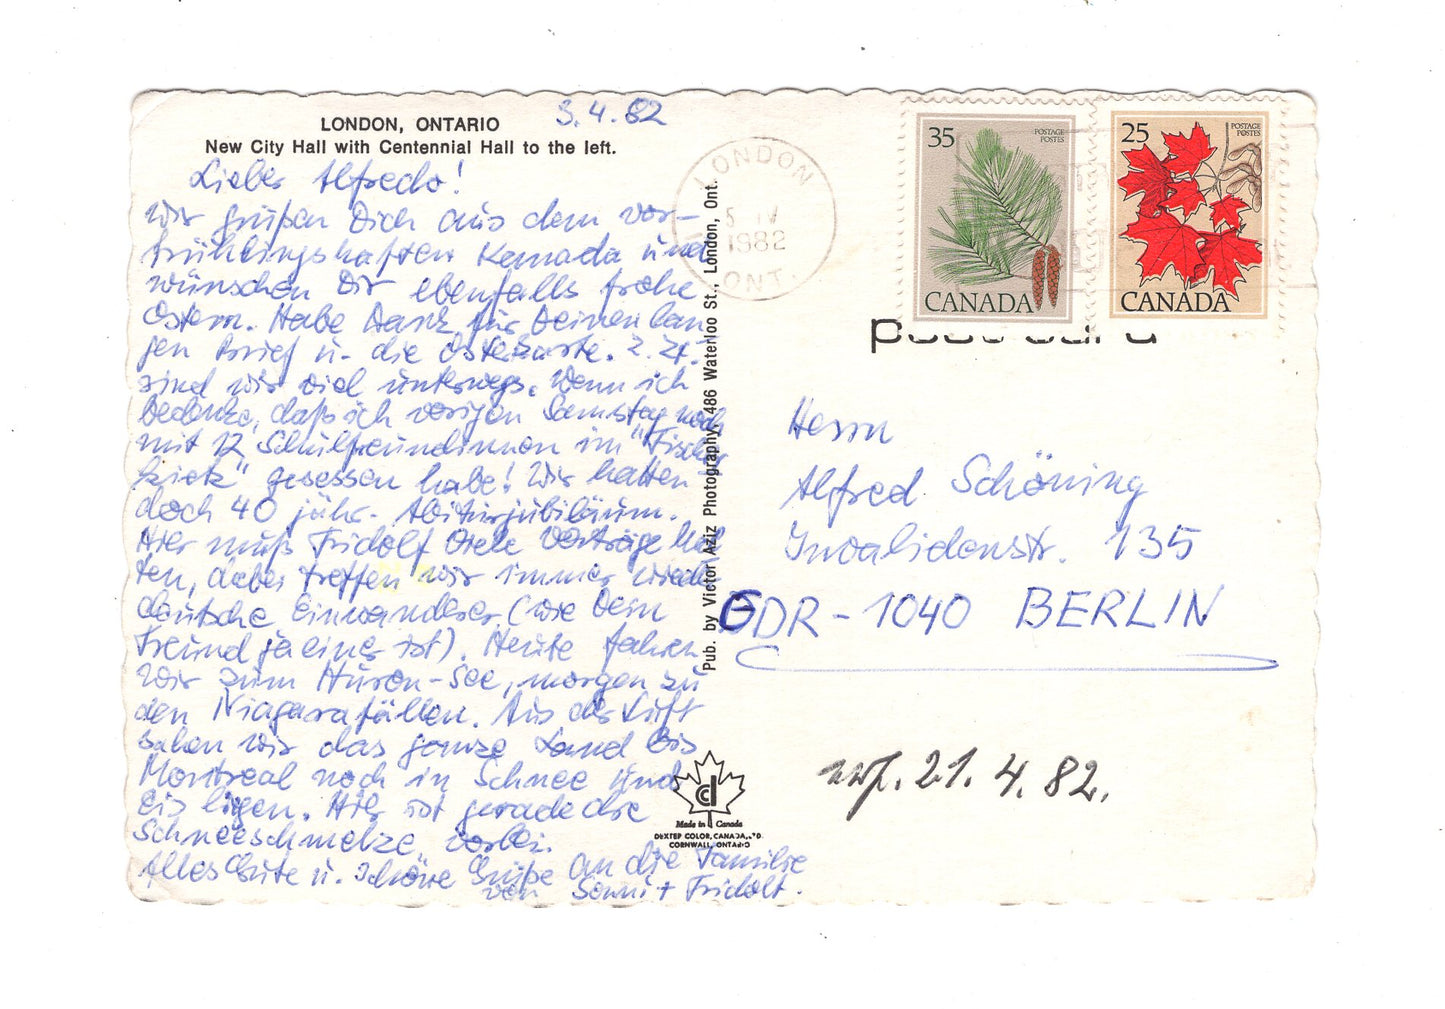 LONDON, ONTARIO
New City Hall with Centennial Hall to the left.
3.4.82
Lieber Alfredo!
Wir grüßen Dich aus dem vor-
frühlingshaften Kanada und
wünschen Dir ebenfalls frohe
Ostern. Habe Dank für Deinen lan
gen Brief u. die Osterkarte. Z. Zt.
sind wir viel unterwegs. Wenn ich
bedenke, daß ich vorigen Samstag noch
mit 12 Schulfreundinnen im "Fischer
kietz" gesessen habe! Wir hatten
doch 40 jähr. Abiturjubiläum.
Hier muß Fridolf viele Vorträge hal
ten, dabei treffen wir immer wieder
deutsche Einwanderer (wie Dein
Freund ja einer ist). Heute fahren
wir zum Huron-See, morgen zu
den Niagarafällen. Aus der Luft
sahen wir das ganze Land bis
Montreal noch in Schnee und
Eis liegen. Hier ist gerade die
Schneeschmelze vorbei.
Alles Gute u. schöne Grüße an die Familie
von Sonni + Fridolf.
Pub. by Victor Aziz Photography, 486 Waterloo St., London, Ont.
Made in Canada
DEXTER COLOR, CANADA, LTD.
CORNWALL, ONTARIO
LONDON
5 IV
1982
ONT.
35
POSTAGE
POSTES
CANADA
25
POSTAGE
POSTES
CANADA
postcard
Herrn
Alfred Schöning
Invalidenstr. 135
GDR-1040 BERLIN
21.4.82.